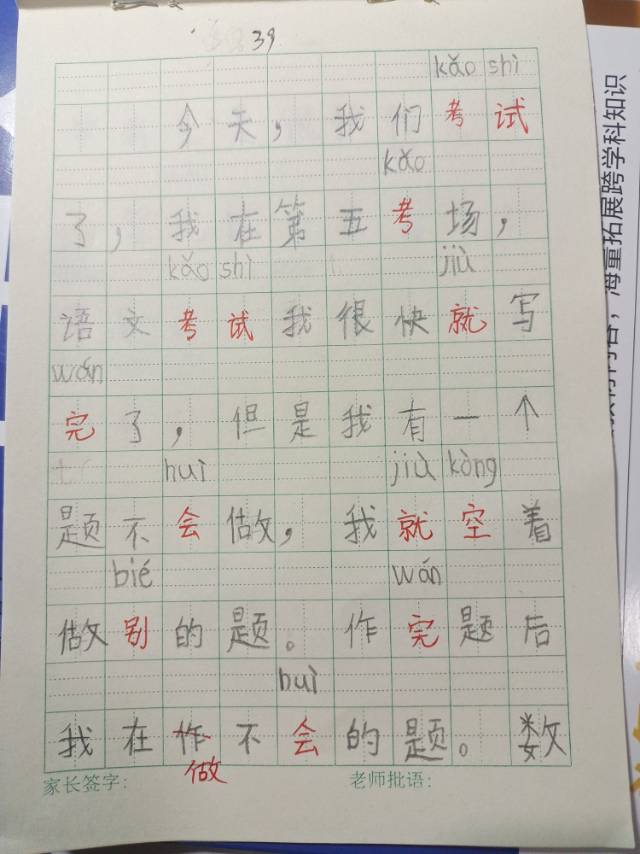 39
kǎo shì
今天，我们考试
kǎo
了，我在第五考场，
kǎo shì jiù
语文考试我很快就写
wán
完了，但是我有一个
huì jiù kòng
题不会做，我就空着
bié wán
做别的题。作完题后
huì
我在作不会的题。数
做
家长签字： 老师批语：
海量拓展跨学科知识